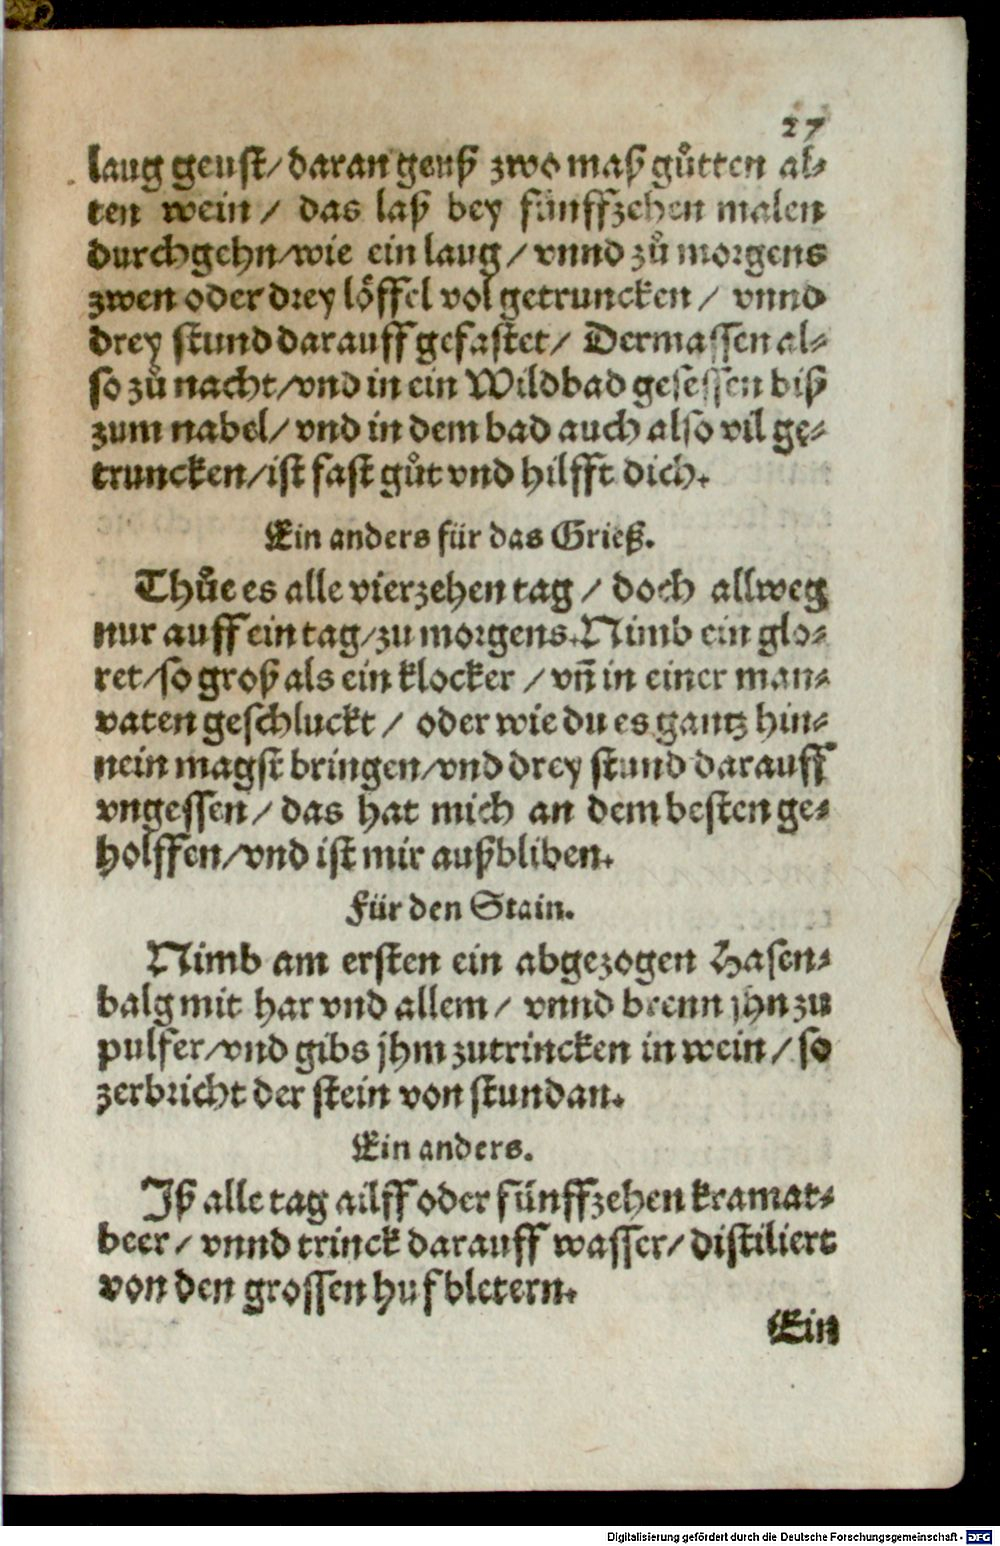 27
laug geust/ daran geuß zwo maß gůtten al-
ten wein / das laß bey fünffzehen malen
durchgehn/wie ein laug / vnnd zů morgens
zwen oder drey löffel vol getruncken / vnnd
drey stund darauff gefastet/ Dermassen al-
so zů nacht/vnd in ein Wildbad gesessen biß
zum nabel/ vnd in dem bad auch also vil ge-
truncken/ist fast gůt vnd hilfft dich.
Ein anders für das Grieß.
Thůe es alle vierzehen tag / doch allweg
nur auff ein tag/zu morgens. Nimb ein glo-
ret/so groß als ein klocker / vñ in einer man-
vaten geschluckt / oder wie du es gantz hin-
nein magst bringen/vnd drey stund darauff
vngessen / das hat mich an dem besten ge-
holffen/vnd ist mir außbliben.
Für den Stain.
Nimb am ersten ein abgezogen Hasen-
balg mit har vnd allem / vnnd brenn jhn zu
pulfer/vnd gibs jhm zutrincken in wein / so
zerbricht der stein von stundan.
Ein anders.
Jß alle tag ailff oder fünffzehen kramat-
beer / vnnd trinck darauff wasser/ distiliert
von den grossen hufbletern.
Ein
Digitalisierung gefördert durch die Deutsche Forschungsgemeinschaft - DFG